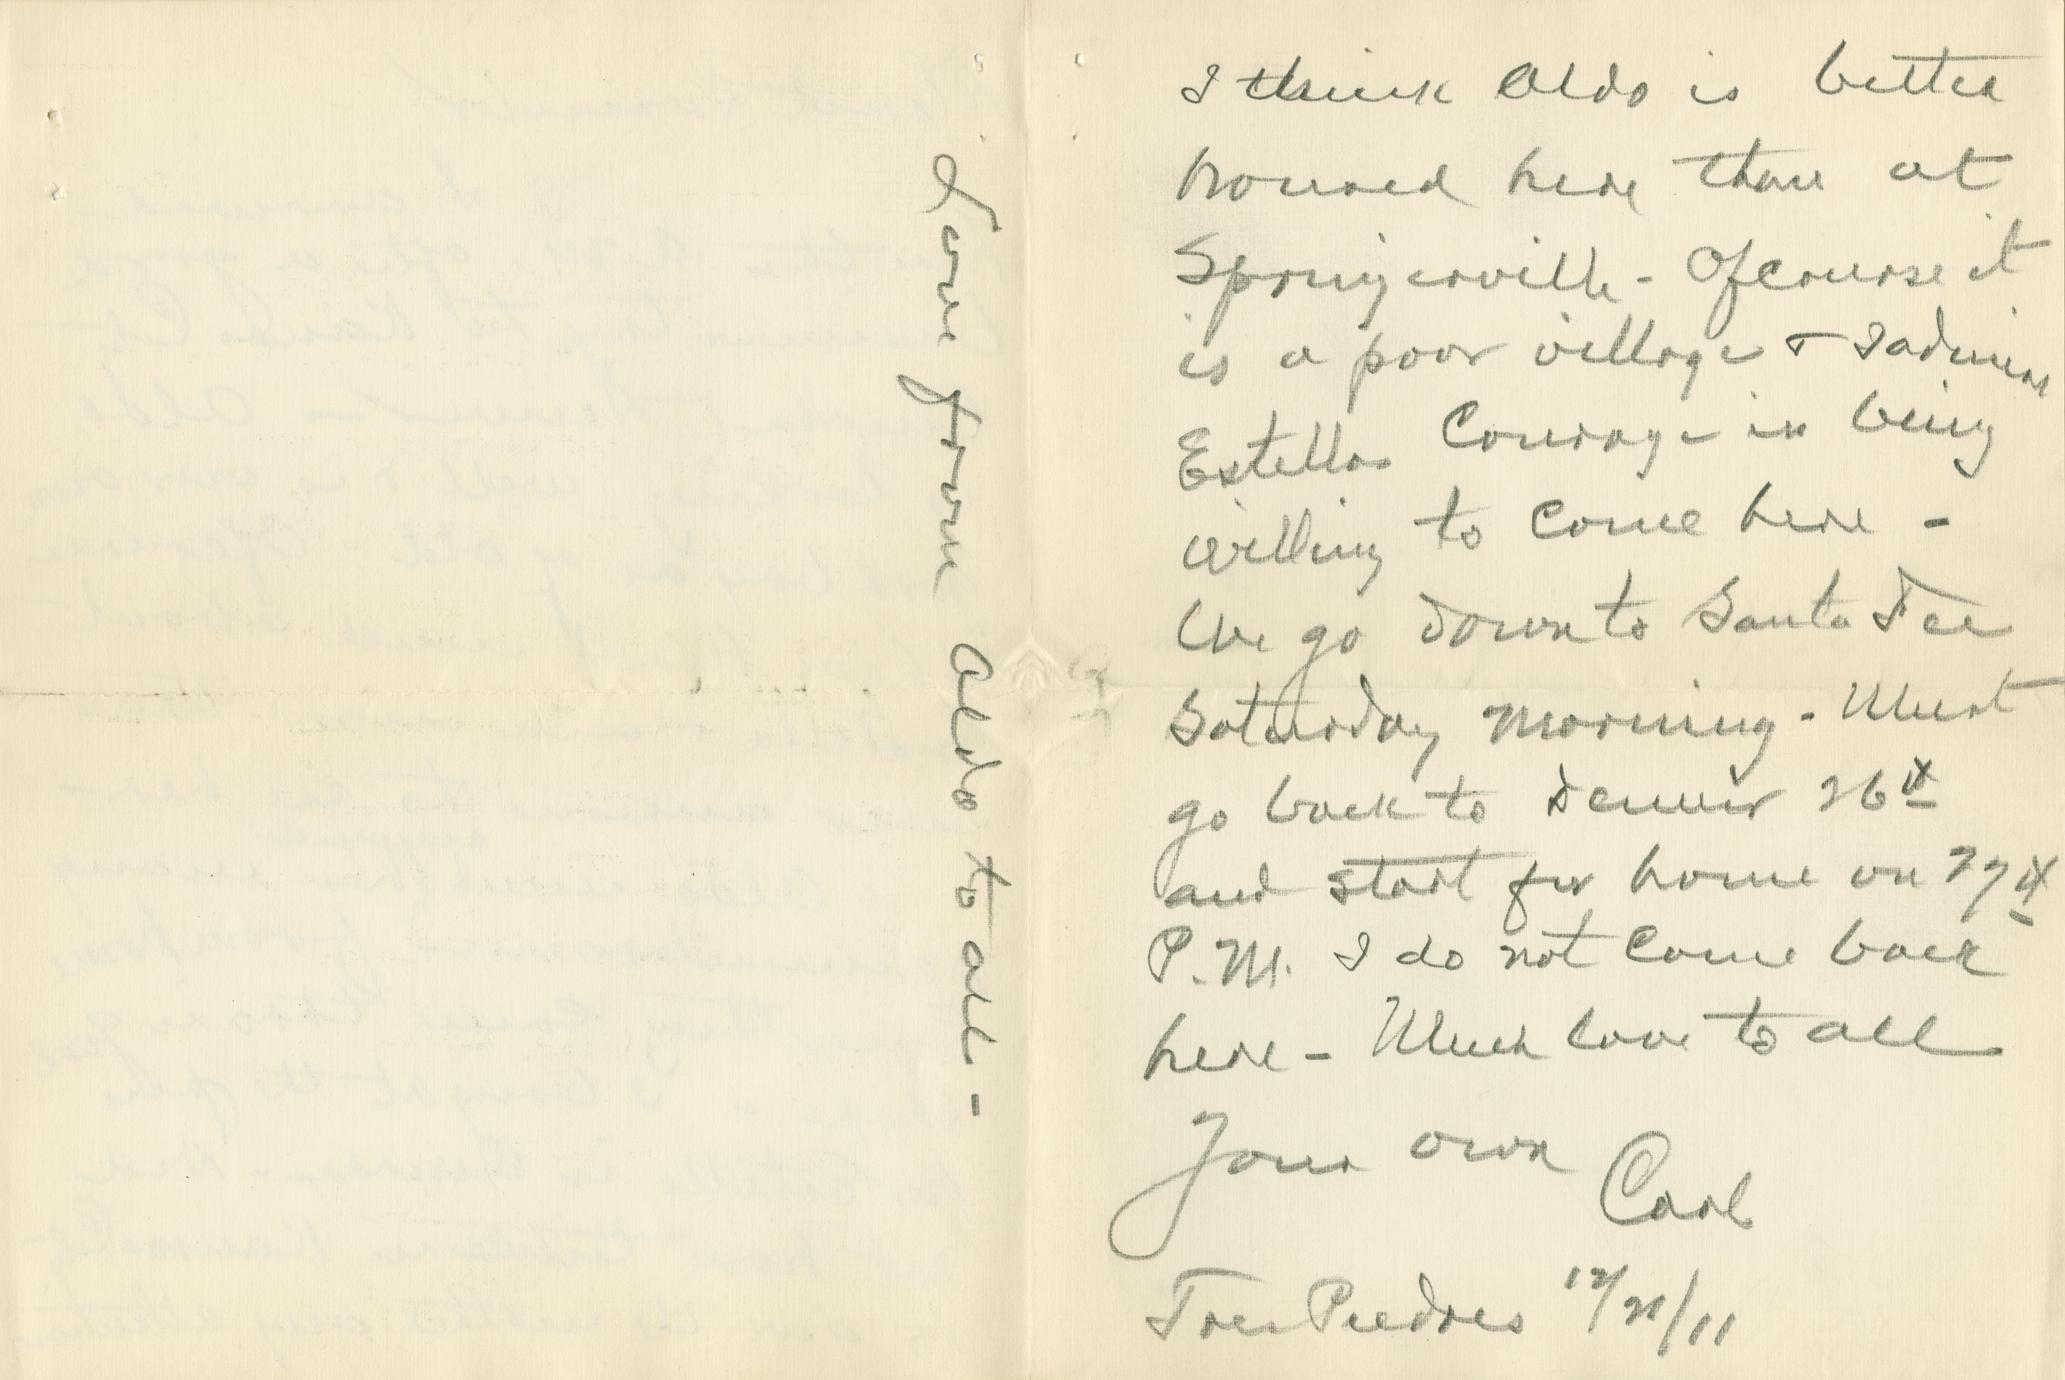 I think Aldo is better
housed here than at
Springerville - Of course it
is a poor village & I admire
Estellas Courage in being
willing to come here -
We go down to Santa Fee
Saturday morning - Must
go back to Denver 26th
and start for home on 27th
P.M. I do not come back
here - Much love to all
Your own Carl
Tres Piedres 12/21/11
Love from Aldo to all -